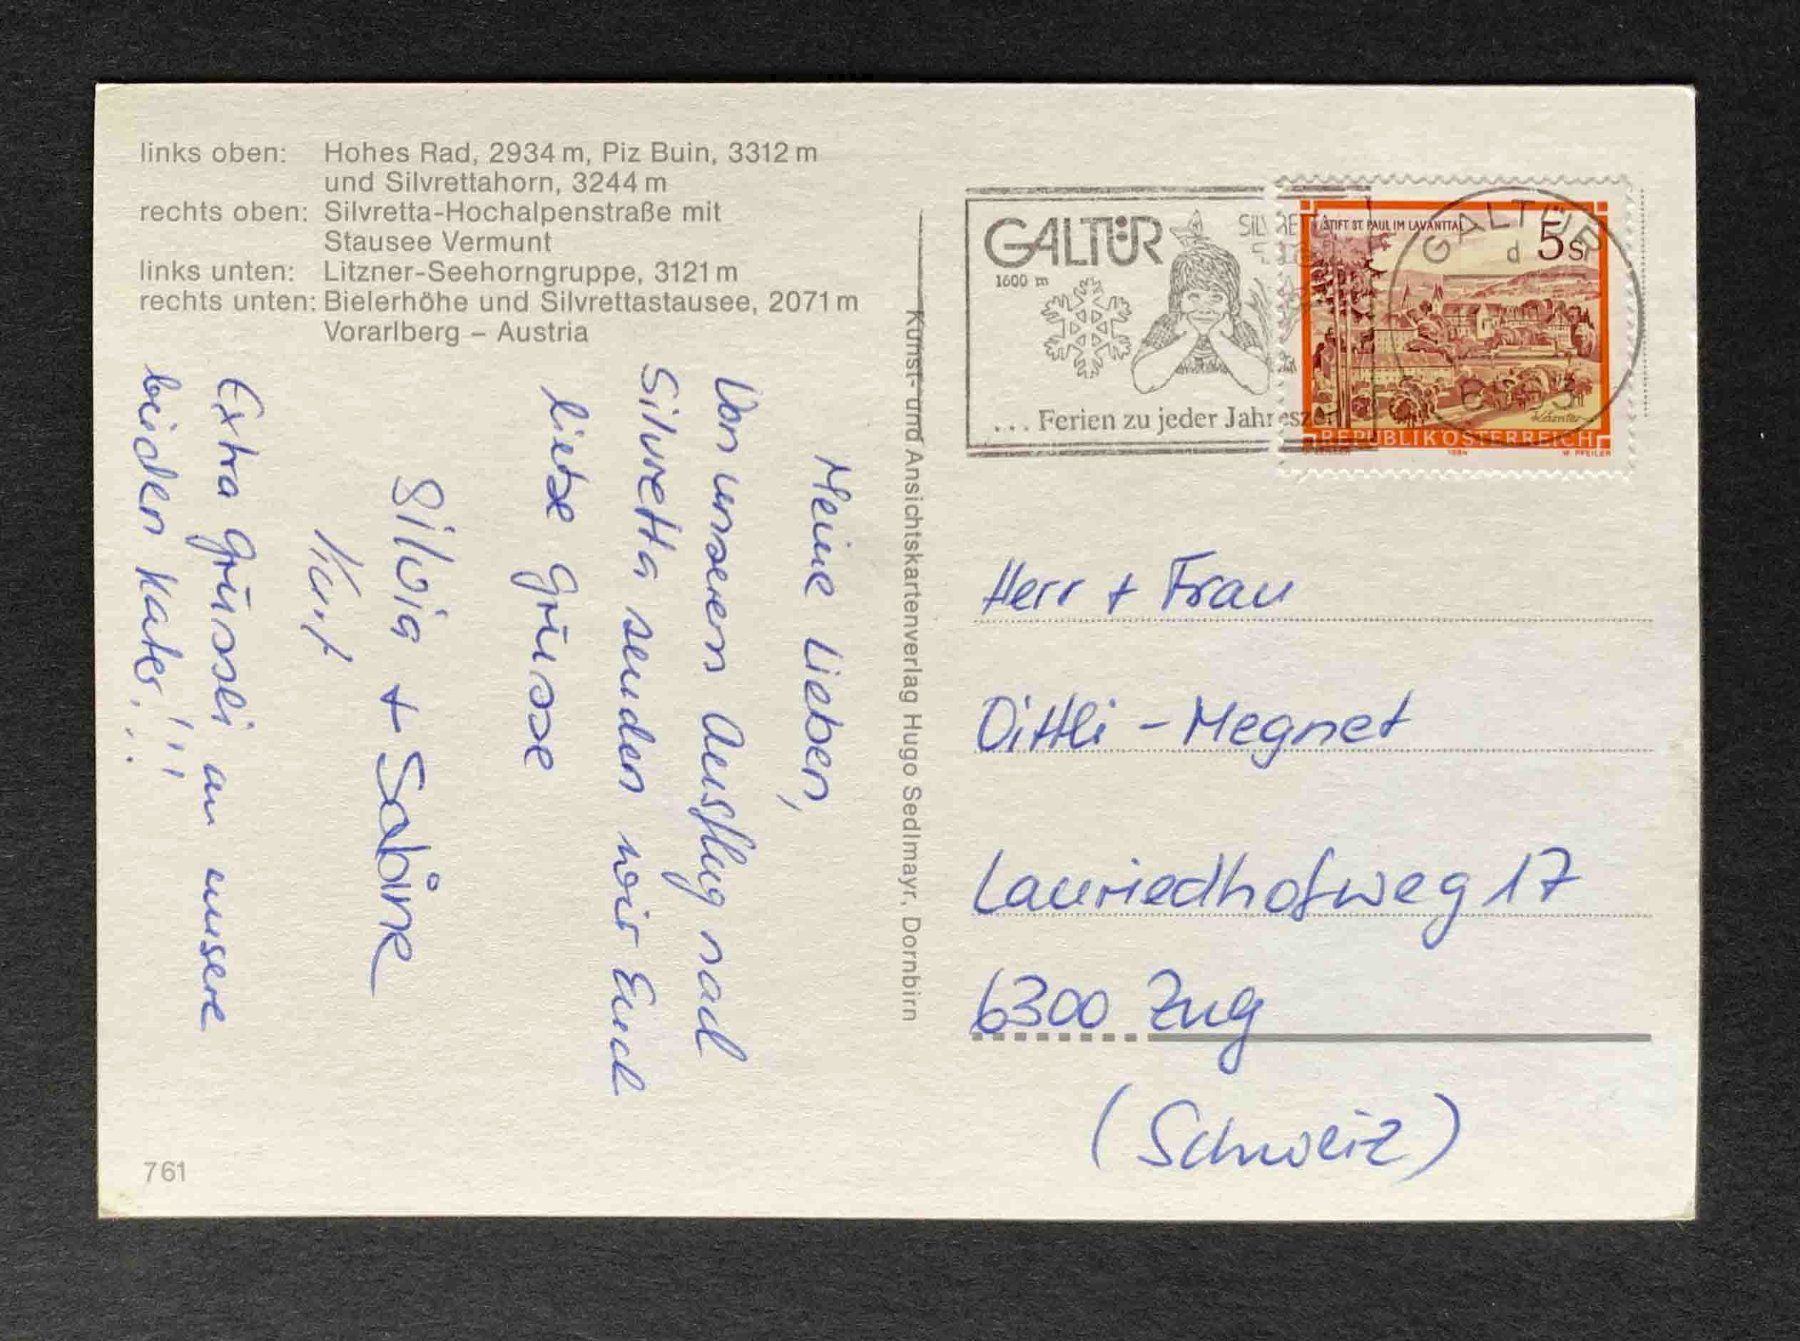 links oben: Hohes Rad, 2934 m, Piz Buin, 3312 m
und Silvrettahorn, 3244 m
rechts oben: Silvretta-Hochalpenstraße mit
Stausee Vermunt
links unten: Litzner-Seehorngruppe, 3121 m
rechts unten: Bielerhöhe und Silvrettastausee, 2071 m
Vorarlberg – Austria
Meine Lieben,
Von unserem Ausflug nach
Silvretta senden wir Euch
liebe Grüsse
Silvia + Sabine
Kurt
Extra Grüssli an unsere
beiden Kater!!!
761
Kunst- und Ansichtskartenverlag Hugo Sedlmayr, Dornbirn
GALTÜR
1600 m
... Ferien zu jeder Jahresze
STIFT ST. PAUL IM LAVANTTAL
5 S
Kärnten
REPUBLIK ÖSTERREICH
1984
W. PFEILER
GALTÜR
d
Herr + Frau
Dittli - Megnet
Lauriedhofweg 17
6300 Zug
(Schweiz)